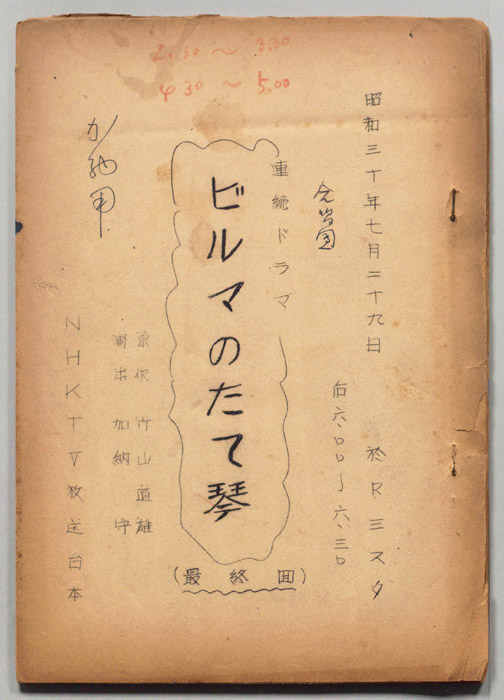 2.30 〜 3.30
4.30 〜 5.00
昭和三十年七月二十九日 於Rミスタ
后六、〇〇〜六、三〇
連続ドラマ
ビルマのたて琴
(最終回)
原作 竹山道雄
演出 加納 守
NHKTV放送台本
加納用